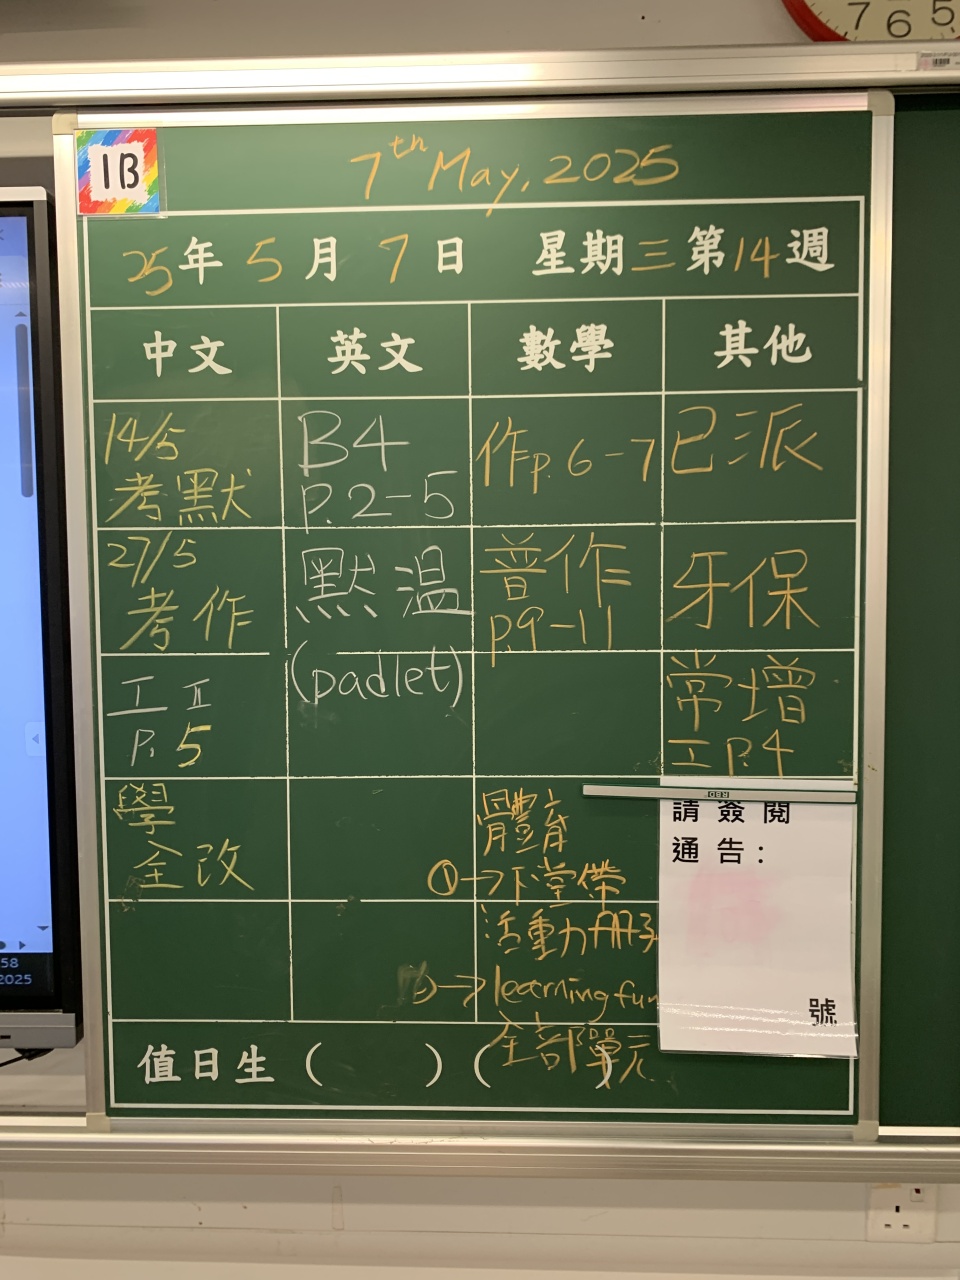 7 6 5
1B
7th May, 2025
25年 5月 7日 星期三第14週
中文 英文 數學 其他
14/5
考默
B4
P.2-5
作p.6-7
已派
27/5
考作
默温
(padlet)
普作
p.9-11
牙保
工 II
P. 5
常增
工 P.4
學
全改
體育
①→下堂帶
活動力
→learning fun
全部單元
請簽閱
通告:
號
值日生 ( ) ( )
58
2025